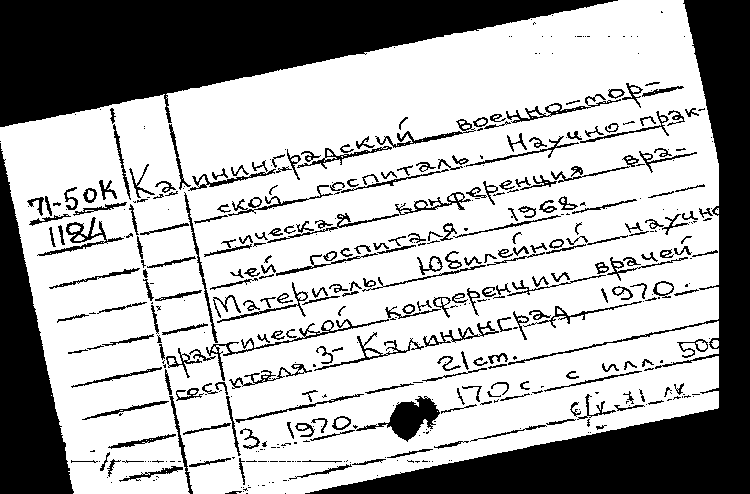 71-50К
1184
Калининградский военно-мор-
ской госпиталь. Научно-прак-
тическая конференция вра-
чей госпиталя. 1968.
Материалы Юбилейной научно
практической конференции врачей
госпиталя. 3- Калининград, 1970.
т. 2/ст.
3. 1970. 170 с. с илл. 500